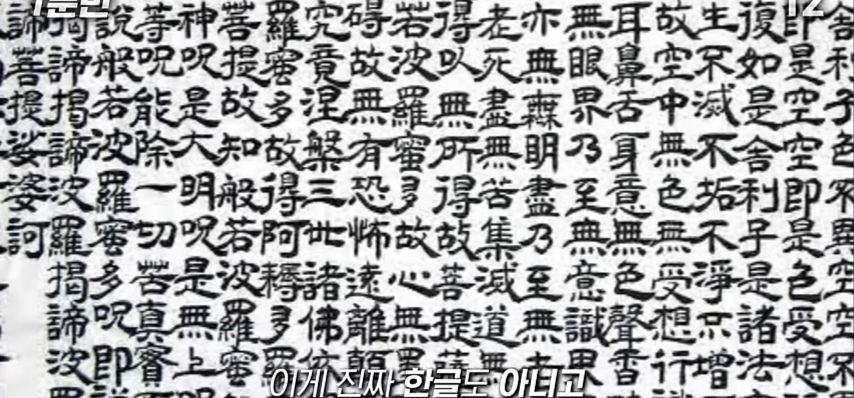 1분만
12
舍利子色不異空空不
即是空空即是色受想
復如是舍利子是諸法
生不滅不垢不淨不增
故空中無色無受想行
耳鼻舌身意無色聲香
無眼界乃至無意識界
亦無無明盡乃至無老
老死盡無苦集滅道無
得以無所得故菩提薩
若波羅蜜多故心無罣
礙故無有恐怖遠離顛
究竟涅槃三世諸佛依
羅蜜多故得阿耨多羅
菩提故知般若波羅蜜
神呪是大明呪是無上
等呪能除一切苦真實
說般若波羅蜜多呪即說
揭諦揭諦波羅揭諦波羅
諦菩提娑婆訶
이게 진짜 한글도 아니고